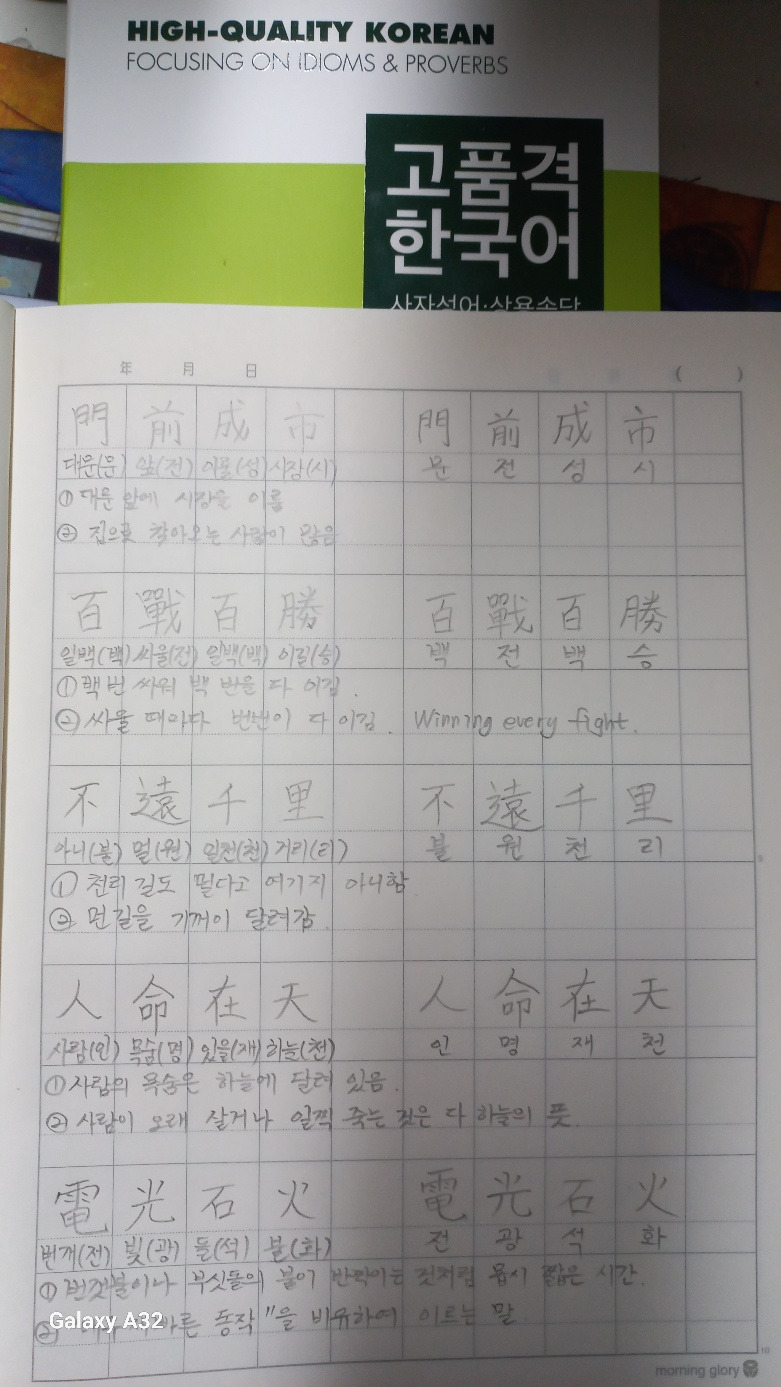 HIGH-QUALITY KOREAN
FOCUSING ON IDIOMS & PROVERBS
고품격
한국어
사자성어·상용속담
年 月 日 ( )
門 前 成 市 門 前 成 市
대문(문) 앞(전) 이룰(성) 시장(시) 문 전 성 시
① 대문 앞에 시장을 이룸
② 집으로 찾아오는 사람이 많음
百 戰 百 勝 百 戰 百 勝
일백(백) 싸울(전) 일백(백) 이길(승) 백 전 백 승
① 백 번 싸워 백 번을 다 이김.
② 싸울 때마다 번번이 다 이김. Winning every fight.
不 遠 千 里 不 遠 千 里
아니(불) 멀(원) 일천(천) 거리(리) 불 원 천 리
① 천리 길도 멀다고 여기지 아니함
② 먼 길을 기꺼이 달려감.
人 命 在 天 人 命 在 天
사람(인) 목숨(명) 있을(재) 하늘(천) 인 명 재 천
① 사람의 목숨은 하늘에 달려 있음.
② 사람이 오래 살거나 일찍 죽는 것은 다 하늘의 뜻.
電 光 石 火 電 光 石 火
번개(전) 빛(광) 돌(석) 불(화) 전 광 석 화
① 번갯불이나 부싯돌의 불이 반짝이는 것처럼 몹시 짧은 시간.
② 동작"을 비유하여 이르는 말
Galaxy A32
morning glory